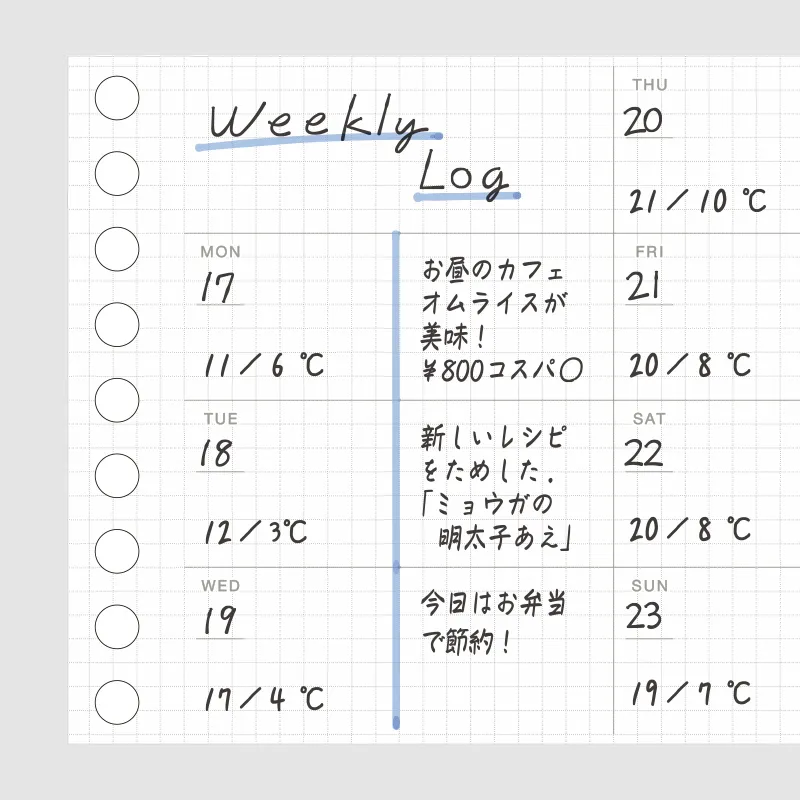 Weekly
Log
MON
17
11/6 ℃
お昼のカフェ
オムライスが
美味！
¥800コスパ○
TUE
18
12/3℃
新しいレシピ
をためした.
「ミョウガの
明太子あえ」
WED
19
17/4 ℃
今日はお弁当
で節約！
THU
20
21/10 ℃
FRI
21
20/8 ℃
SAT
22
20/8 ℃
SUN
23
19/7 ℃